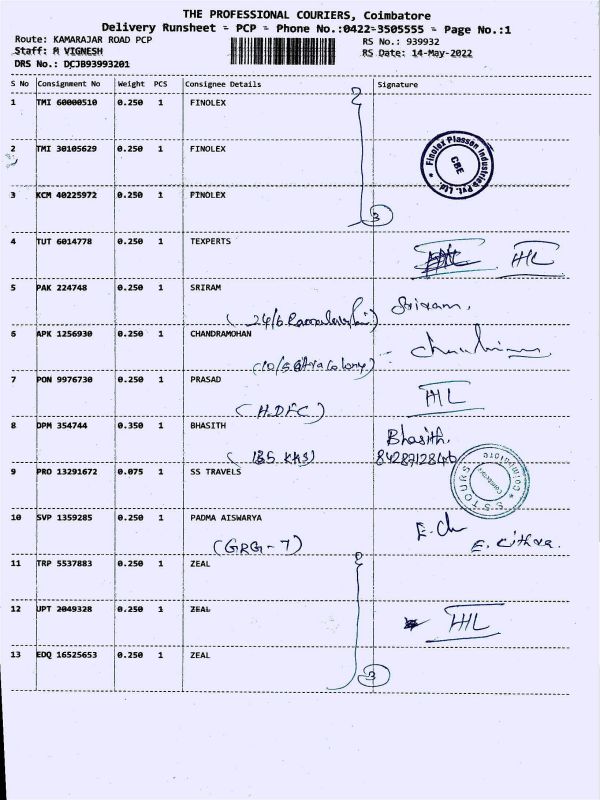 THE PROFESSIONAL COURIERS, Coimbatore
Delivery Runsheet - PCP - Phone No.:0422-3505555 - Page No.:1
Route: KAMARAJAR ROAD PCP
RS No.: 939932
Staff: M VIGNESH
RS Date: 14-May-2022
DRS No.: DCJB93993201
S No Consignment No Weight PCS Consignee Details Signature
1 TMI 60000510 0.250 1 FINOLEX
2 TMI 30105629 0.250 1 FINOLEX
Finolex Plasson Industries Pvt. Ltd. * CBE
3 KCM 40225972 0.250 1 FINOLEX
3
4 TUT 6014778 0.250 1 TEXPERTS
5 PAK 224748 0.250 1 SRIRAM
(24/6 Sriram.
6 APK 1256930 0.250 1 CHANDRAMOHAN
(10/5 Colony)
7 PON 9976730 0.250 1 PRASAD
(HDFC)
8 DPM 354744 0.350 1 BHASITH Bhasith.
(135 KKS) 8428912846
9 PRO 13291672 0.075 1 SS TRAVELS
S S TOURS * Coimbatore
10 SVP 1359285 0.250 1 PADMA AISWARYA
(GRG-7) E. Kithra.
11 TRP 5537883 0.250 1 ZEAL
12 UPT 2049328 0.250 1 ZEAL
13 EDQ 16525653 0.250 1 ZEAL
3